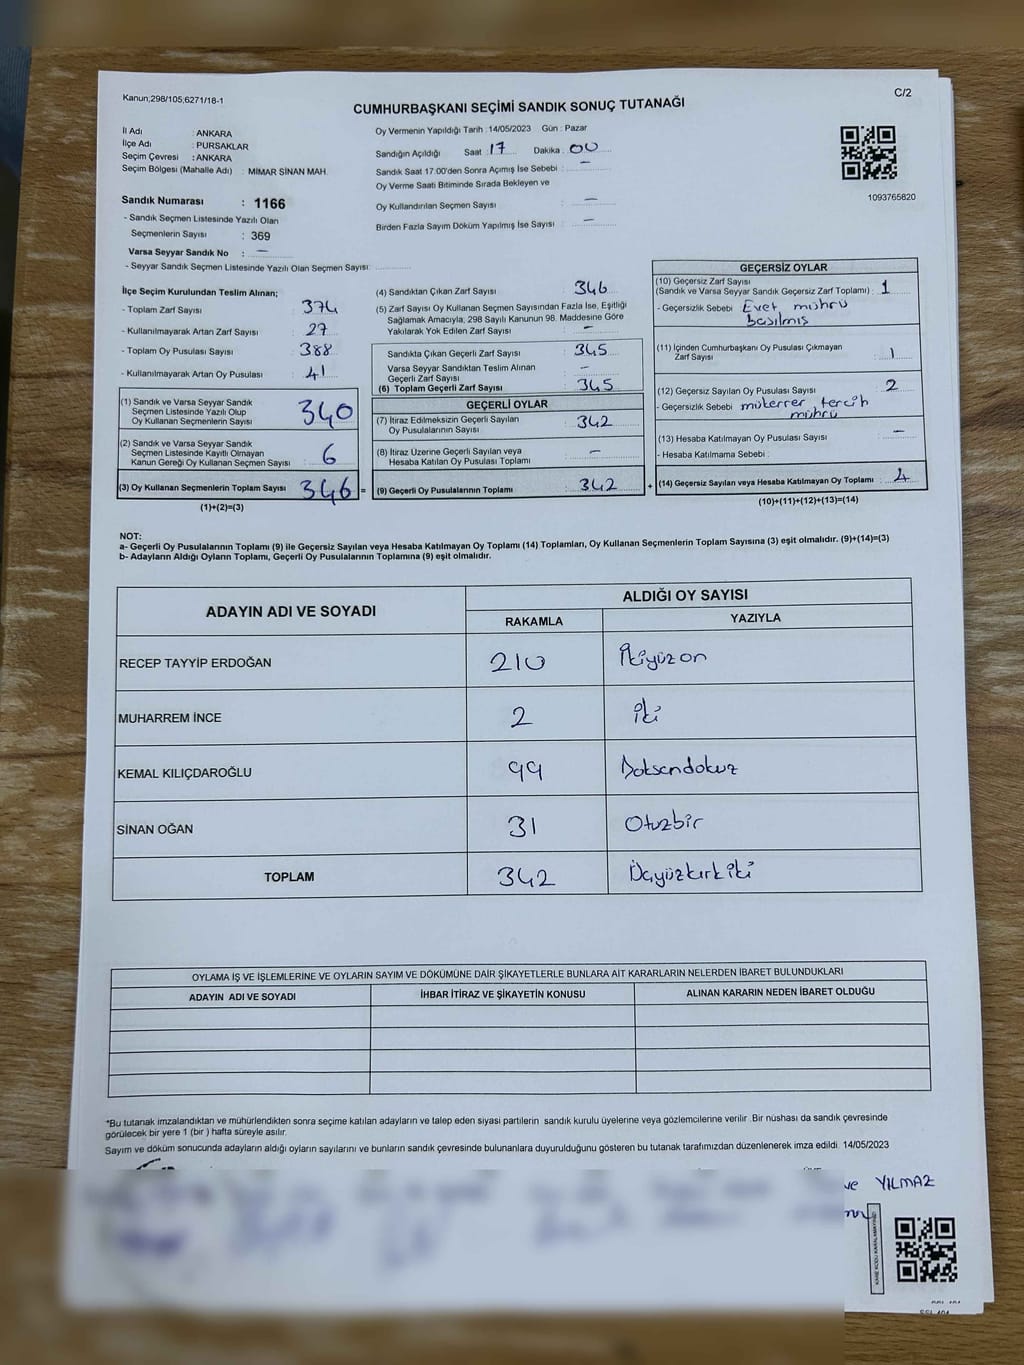 Kanun;298/105;6271/18-1
C/2
CUMHURBAŞKANI SEÇİMİ SANDIK SONUÇ TUTANAĞI
İl Adı : ANKARA
İlçe Adı : PURSAKLAR
Seçim Çevresi : ANKARA
Seçim Bölgesi (Mahalle Adı) : MİMAR SİNAN MAH.
Sandık Numarası : 1166
- Sandık Seçmen Listesinde Yazılı Olan
Seçmenlerin Sayısı : 369
Varsa Seyyar Sandık No : —
- Seyyar Sandık Seçmen Listesinde Yazılı Olan Seçmen Sayısı:
Oy Vermenin Yapıldığı Tarih : 14/05/2023 Gün : Pazar
Sandığın Açıldığı Saat : 17 Dakika : 00
Sandık Saat 17.00'den Sonra Açımış İse Sebebi : —
Oy Verme Saati Bitiminde Sırada Bekleyen ve
Oy Kullandırılan Seçmen Sayısı : —
Birden Fazla Sayım Döküm Yapılmış İse Sayısı : —
1093765820
İlçe Seçim Kurulundan Teslim Alınan;
- Toplam Zarf Sayısı : 374
- Kullanılmayarak Artan Zarf Sayısı : 27
- Toplam Oy Pusulası Sayısı : 388
- Kullanılmayarak Artan Oy Pusulası : 41
(1) Sandık ve Varsa Seyyar Sandık
Seçmen Listesinde Yazılı Olup
Oy Kullanan Seçmenlerin Sayısı : 340
(2) Sandık ve Varsa Seyyar Sandık
Seçmen Listesinde Kayıtlı Olmayan
Kanun Gereği Oy Kullanan Seçmen Sayısı : 6
(3) Oy Kullanan Seçmenlerin Toplam Sayısı : 346 =
(1)+(2)=(3)
(4) Sandıktan Çıkan Zarf Sayısı : 346
(5) Zarf Sayısı Oy Kullanan Seçmen Sayısından Fazla İse, Eşitliği
Sağlamak Amacıyla, 298 Sayılı Kanunun 98. Maddesine Göre
Yakılarak Yok Edilen Zarf Sayısı : —
Sandıkta Çıkan Geçerli Zarf Sayısı : 345
Varsa Seyyar Sandıktan Teslim Alınan
Geçerli Zarf Sayısı : —
(6) Toplam Geçerli Zarf Sayısı : 345
GEÇERLİ OYLAR
(7) İtiraz Edilmeksizin Geçerli Sayılan
Oy Pusulalarının Sayısı : 342
(8) İtiraz Üzerine Geçerli Sayılan veya
Hesaba Katılan Oy Pusulası Toplamı : —
(9) Geçerli Oy Pusulalarının Toplamı : 342 +
GEÇERSİZ OYLAR
(10) Geçersiz Zarf Sayısı
(Sandık ve Varsa Seyyar Sandık Geçersiz Zarf Toplamı) : 1
- Geçersizlik Sebebi : Evet mührü
basılmış
(11) İçinden Cumhurbaşkanı Oy Pusulası Çıkmayan
Zarf Sayısı : 1
(12) Geçersiz Sayılan Oy Pusulası Sayısı : 2
- Geçersizlik Sebebi : mükerrer tercih
mührü
(13) Hesaba Katılmayan Oy Pusulası Sayısı : —
- Hesaba Katılmama Sebebi :
(14) Geçersiz Sayılan veya Hesaba Katılmayan Oy Toplamı : 4
(10)+(11)+(12)+(13)=(14)
NOT:
a- Geçerli Oy Pusulalarının Toplamı (9) ile Geçersiz Sayılan veya Hesaba Katılmayan Oy Toplamı (14) Toplamları, Oy Kullanan Seçmenlerin Toplam Sayısına (3) eşit olmalıdır. (9)+(14)=(3)
b- Adayların Aldığı Oyların Toplamı, Geçerli Oy Pusulalarının Toplamına (9) eşit olmalıdır.
ADAYIN ADI VE SOYADI
ALDIĞI OY SAYISI
RAKAMLA YAZIYLA
RECEP TAYYİP ERDOĞAN 210 İkiyüzon
MUHARREM İNCE 2 İki
KEMAL KILIÇDAROĞLU 99 Doksandokuz
SİNAN OĞAN 31 Otuzbir
TOPLAM 342 Üçyüzkırkiki
OYLAMA İŞ VE İŞLEMLERİNE VE OYLARIN SAYIM VE DÖKÜMÜNE DAİR ŞİKAYETLERLE BUNLARA AİT KARARLARIN NELERDEN İBARET BULUNDUKLARI
ADAYIN ADI VE SOYADI İHBAR İTİRAZ VE ŞİKAYETİN KONUSU ALINAN KARARIN NEDEN İBARET OLDUĞU
*Bu tutanak imzalandıktan ve mühürlendikten sonra seçime katılan adayların ve talep eden siyasi partilerin sandık kurulu üyelerine veya gözlemcilerine verilir .Bir nüshası da sandık çevresinde
görülecek bir yere 1 (bir ) hafta süreyle asılır.
Sayım ve döküm sonucunda adayların aldığı oyların sayılarını ve bunların sandık çevresinde bulunanlara duyurulduğunu gösteren bu tutanak tarafımızdan düzenlenerek imza edildi. 14/05/2023
ve YILMAZ